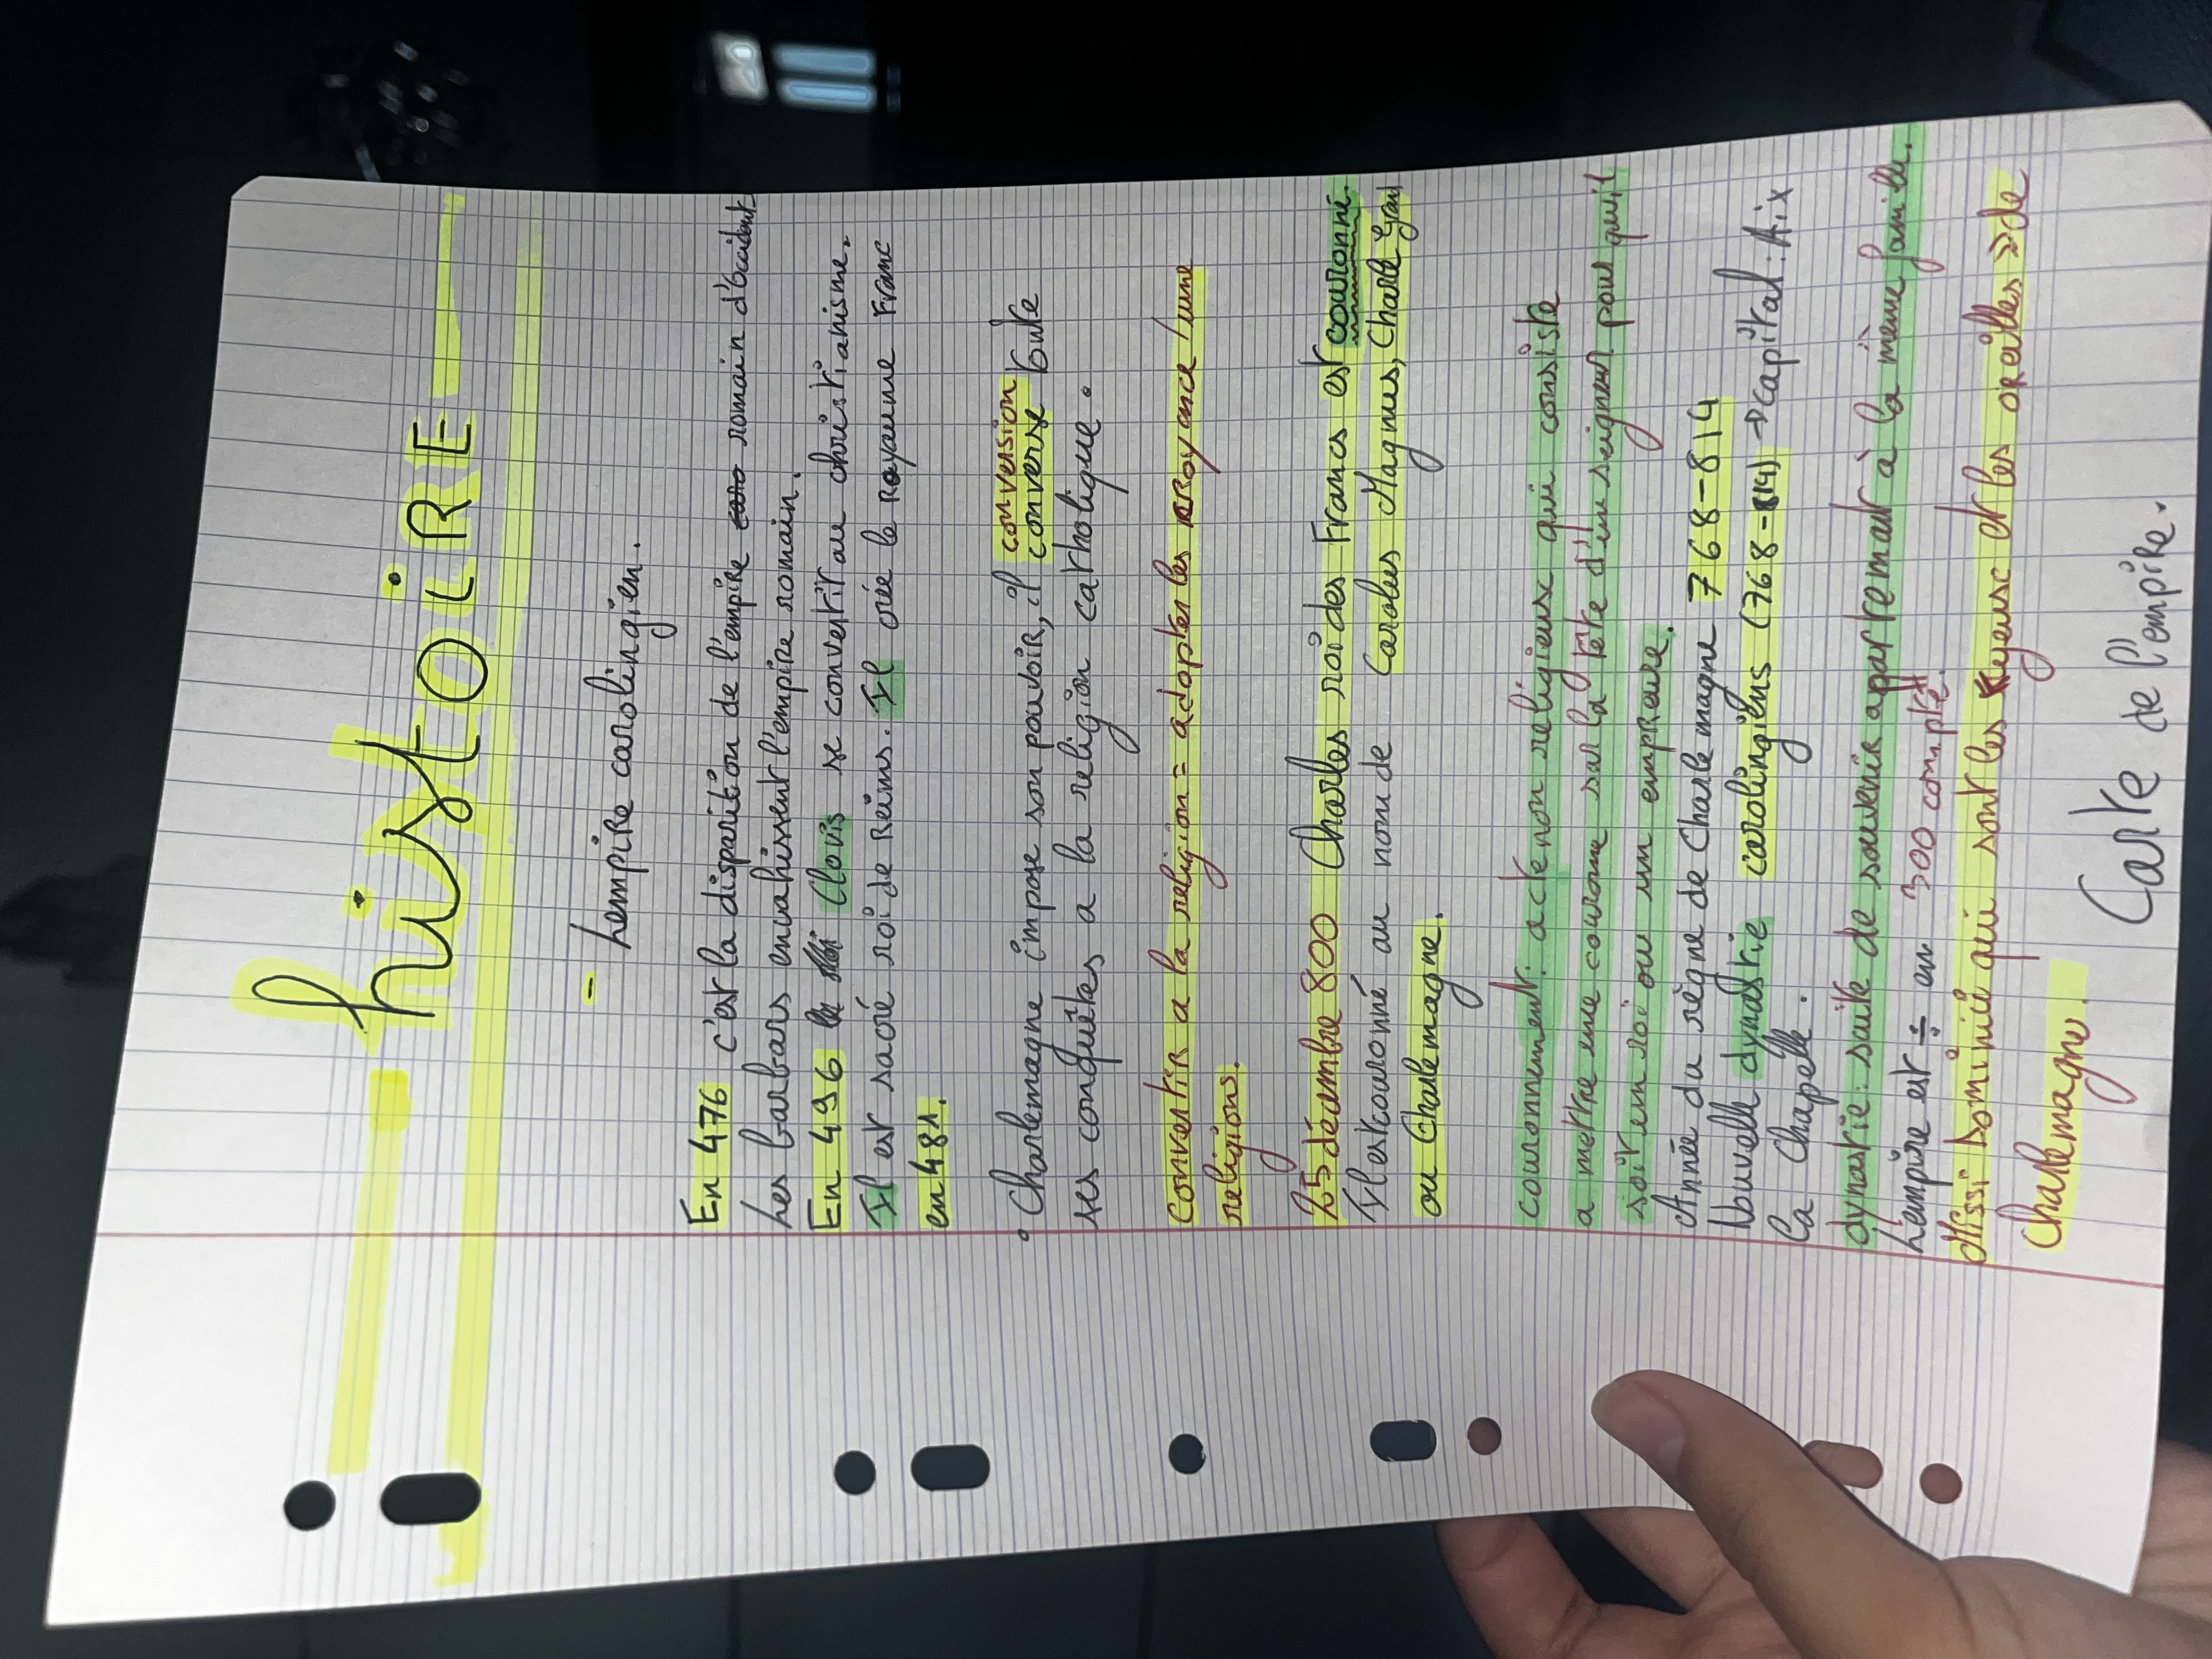 histOiRE
- Lempire carolingien.
En 476 c'est la disparition de l'empire romain d'Occident
Les barbars envahissent l'empire romain.
En 496 Clovis se convertit au christianisme.
Il est sacré roi de Reims. Il crée le Royaume Franc
en 481.
conversion
• Charlemagne impose son pouvoir, il converse toute
ses conquêtes a la religion catholique.
Convertir a la religion = adopter les croyance / une
religions.
25 décembre 800 Charles roi des Francs est couronné.
Il est couronné au nom de Carolus Magnus, Charle gran
ou Charlemagne.
couronnement: acte non religieux qui consiste
a mettre une couronne sur la tête d'un seigneur pour quil
soit un roi ou un empreure.
Année du règne de Charlemagne 768-814
Nouvelle dynastie carolingiens (768-814) → capital: Aix
la Chapelle.
dynastie: suite de souverir appartemant à la même famille.
L'empire est ÷ en 300 compté.
Missi Dominici qui sont les yeusc et les oreilles » de
Charlemagne.
Carte de l'empire.